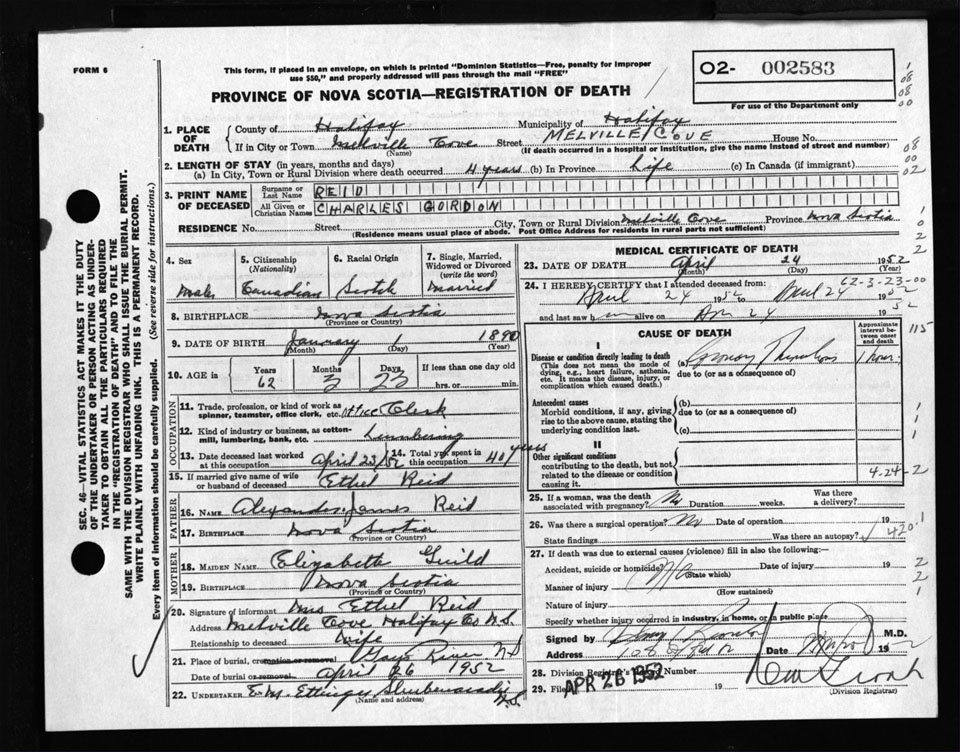 FORM 6
This form, if placed in an envelope, on which is printed "Dominion Statistics—Free, penalty for improper
use $50," and properly addressed will pass through the mail "FREE"
PROVINCE OF NOVA SCOTIA—REGISTRATION OF DEATH
02- 002583
For use of the Department only
SEC. 46—VITAL STATISTICS ACT MAKES IT THE DUTY
OF THE UNDERTAKER OR PERSON ACTING AS UNDER-
TAKER TO OBTAIN ALL THE PARTICULARS REQUIRED
IN THE "REGISTRATION OF DEATH" AND TO FILE THE
SAME WITH THE DIVISION REGISTRAR WHO SHALL ISSUE THE BURIAL PERMIT.
WRITE PLAINLY WITH UNFADING INK. THIS IS A PERMANENT RECORD.
Every item of information should be carefully supplied. (See reverse side for instructions.)
1. PLACE OF DEATH
County of Halifax Municipality of Halifax
If in City or Town Melville Cove Street MELVILLE COVE House No.
(Name) (If death occurred in a hospital or institution, give the name instead of street and number)
2. LENGTH OF STAY (in years, months and days)
(a) In City, Town or Rural Division where death occurred 4 years (b) In Province Life (c) In Canada (if immigrant)
3. PRINT NAME OF DECEASED
Surname or Last Name REID
All Given or Christian Names CHARLES GORDON
RESIDENCE No. Street City, Town or Rural Division Melville Cove Province Nova Scotia
(Residence means usual place of abode. Post Office Address for residents in rural parts not sufficient)
4. Sex 5. Citizenship (Nationality) 6. Racial Origin 7. Single, Married, Widowed or Divorced (write the word)
Male Canadian Scotch Married
8. BIRTHPLACE Nova Scotia
(Province or Country)
9. DATE OF BIRTH January 1 1890
(Month) (Day) (Year)
10. AGE Years Months Days If less than one day old
62 3 23 hrs. or min.
OCCUPATION
11. Trade, profession, or kind of work as spinner, teamster, office clerk, etc. Office Clerk
12. Kind of industry or business, as cotton-mill, lumbering, bank, etc. Lumbering
13. Date deceased last worked at this occupation April 23/52 14. Total yrs. spent in this occupation 40 years
15. If married give name of wife or husband of deceased Ethel Reid
FATHER
16. NAME Alexander James Reid
17. BIRTHPLACE Nova Scotia
(Province or Country)
MOTHER
18. MAIDEN NAME Elizabeth Guild
19. BIRTHPLACE Nova Scotia
(Province or Country)
20. Signature of informant Mrs Ethel Reid
Address Melville Cove Halifax Co N.S.
Relationship to deceased Wife
21. Place of burial, cremation or removal Gays River N.S
Date of burial or removal April 26 1952
22. UNDERTAKER E. M. Ettinger Shubenacadie N.S.
(Name and address)
MEDICAL CERTIFICATE OF DEATH
23. DATE OF DEATH April 24 1952
(Month) (Day) (Year)
62-3-23-00
24. I HEREBY CERTIFY that I attended deceased from:
April 24 1952 to April 24 1952
and last saw h im alive on Apr 24 1952
115
CAUSE OF DEATH
Approximate interval between onset and death
I
Disease or condition directly leading to death (a) Coronary Thrombosis 1 hour
(This does not mean the mode of dying, e.g., heart failure, asthenia, etc. It means the disease, injury, or complication which caused death.)
due to (or as a consequence of)
Antecedent causes (b)
Morbid conditions, if any, giving rise to the above cause, stating the underlying condition last.
due to (or as a consequence of)
(c)
II
Other significant conditions
contributing to the death, but not related to the disease or condition causing it.
4-24-2
25. If a woman, was the death associated with pregnancy? No Duration weeks. Was there a delivery?
26. Was there a surgical operation? No Date of operation 19
State findings Was there an autopsy? 420.1
27. If death was due to external causes (violence) fill in also the following:—
Accident, suicide or homicide (State which) Date of injury 19
Manner of injury
(How sustained)
Nature of injury
Specify whether injury occurred in industry, in home, or in public place
Signed by M.D.
Address Date 19
28. Division Registrar's Record Number
29. Filed APR 26 1952 19
(Division Registrar)